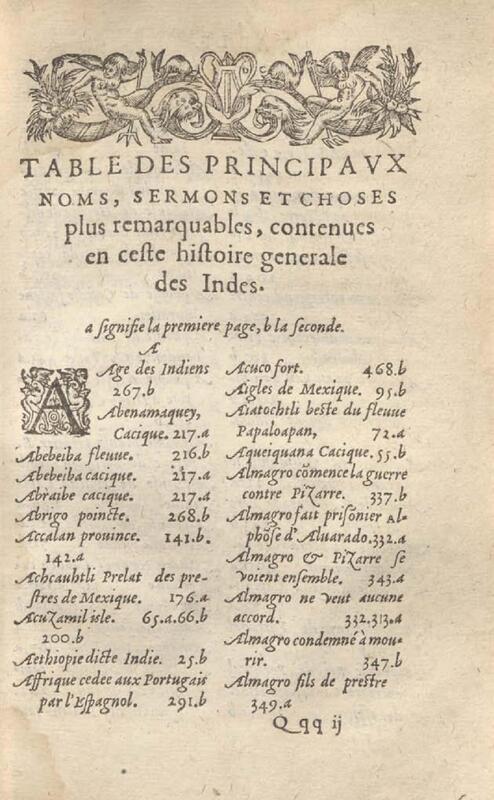 TABLE DES PRINCIPAVX
NOMS, SERMONS ET CHOSES
plus remarquables, contenues
en ceste histoire generale
des Indes.
a signifie la premiere page, b la seconde.
A
Age des Indiens
267.b
Abenamaquey,
Cacique. 217.a
Abebeiba fleuue. 216.b
Abebeiba cacique. 217.a
Abraibe cacique. 217.a
Abrigo poincte. 268.b
Accalan prouince. 141.b.
142.a
Achcauhtli Prelat des pre-
stres de Mexique. 176.a
Acuzamil isle. 65.a.66.b
200.b
Aethiopie dicte Indie. 25.b
Affrique cedee aux Portugais
par l'Espagnol. 291.b
Acuco fort. 468.b
Aigles de Mexique. 95.b
Aiatochtli beste du fleuue
Papaloapan, 72.a
Aqueiquana Cacique. 55.b
Almagro cõmence la guerre
contre Pizarre. 337.b
Almagro fait prisõnier Al-
phõse d'Aluarado. 332.a
Almagro & Pizarre se
voient ensemble. 343.a
Almagro ne veut aucune
accord. 332.313.a
Almagro condemné à mou-
rir. 347.b
Almagro fils de prestre
349.a
Qqq ij